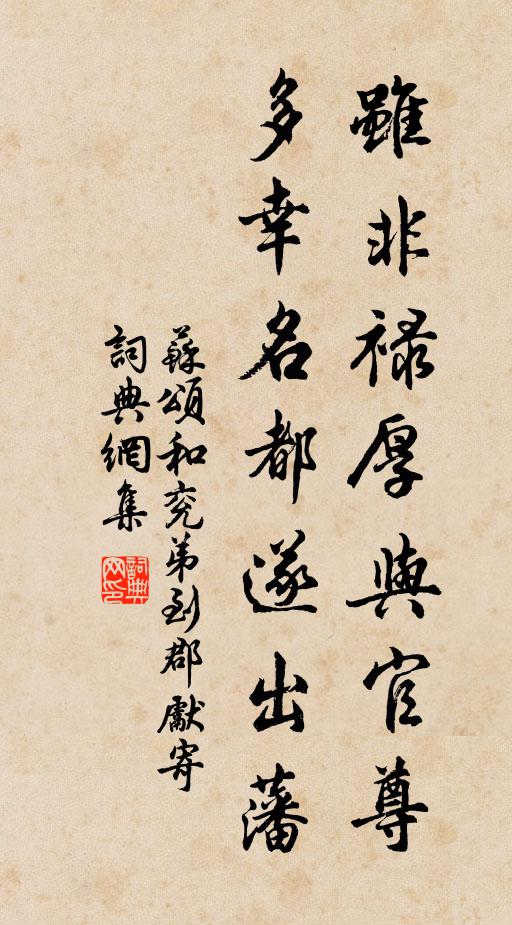 雖非祿厚與官尊
多幸名都遂出藩
蘇頌和兖弟到郡獻寄
詞典網集
詞典網印